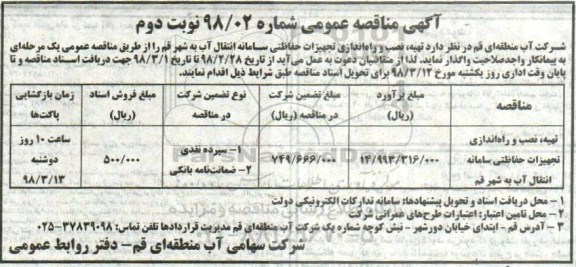 آگهی مناقصه عمومی شماره ۹۸/۰۲ نوبت دوم
شرکت آب منطقه‌ای قم در نظر دارد تهیه، نصب و راه‌اندازی تجهیزات حفاظتی سامانه انتقال آب به شهر قم را از طریق مناقصه عمومی یک مرحله‌ای
به پیمانکار واجدصلاحیت واگذار نماید. لذا از متقاضیان دعوت به عمل می‌آید از تاریخ ۹۸/۲/۲۸ تا تاریخ ۹۸/۳/۱ جهت دریافت اسناد مناقصه و تا
پایان وقت اداری روز یکشنبه مورخ ۹۸/۳/۱۲ برای تحویل اسناد مناقصه طبق شرایط ذیل اقدام نمایند.
مناقصه	مبلغ برآورد (ریال)	مبلغ تضمین شرکت در مناقصه (ریال)	نوع تضمین شرکت در مناقصه	مبلغ فروش اسناد (ریال)	زمان بازگشایی پاکت‌ها
تهیه، نصب و راه‌اندازی تجهیزات حفاظتی سامانه انتقال آب به شهر قم	۱۴/۹۹۳/۳۱۶/۰۰۰	۷۴۹/۶۶۶/۰۰۰	۱- سپرده نقدی ۲- ضمانت‌نامه بانکی	۵۰۰/۰۰۰	ساعت ۱۰ روز دوشنبه ۹۸/۳/۱۳
۱ - محل دریافت اسناد و تحویل پیشنهادها: سامانه تدارکات الکترونیکی دولت
۲ - محل تامین اعتبار: اعتبارات طرح‌های عمرانی شرکت
۳ - آدرس قم - ابتدای خیابان دورشهر - نبش کوچه شماره یک شرکت آب منطقه‌ای قم مدیریت قراردادها تلفن تماس: ۳۷۸۳۹۰۹۸-۰۲۵
شرکت سهامی آب منطقه‌ای قم- دفتر روابط عمومی